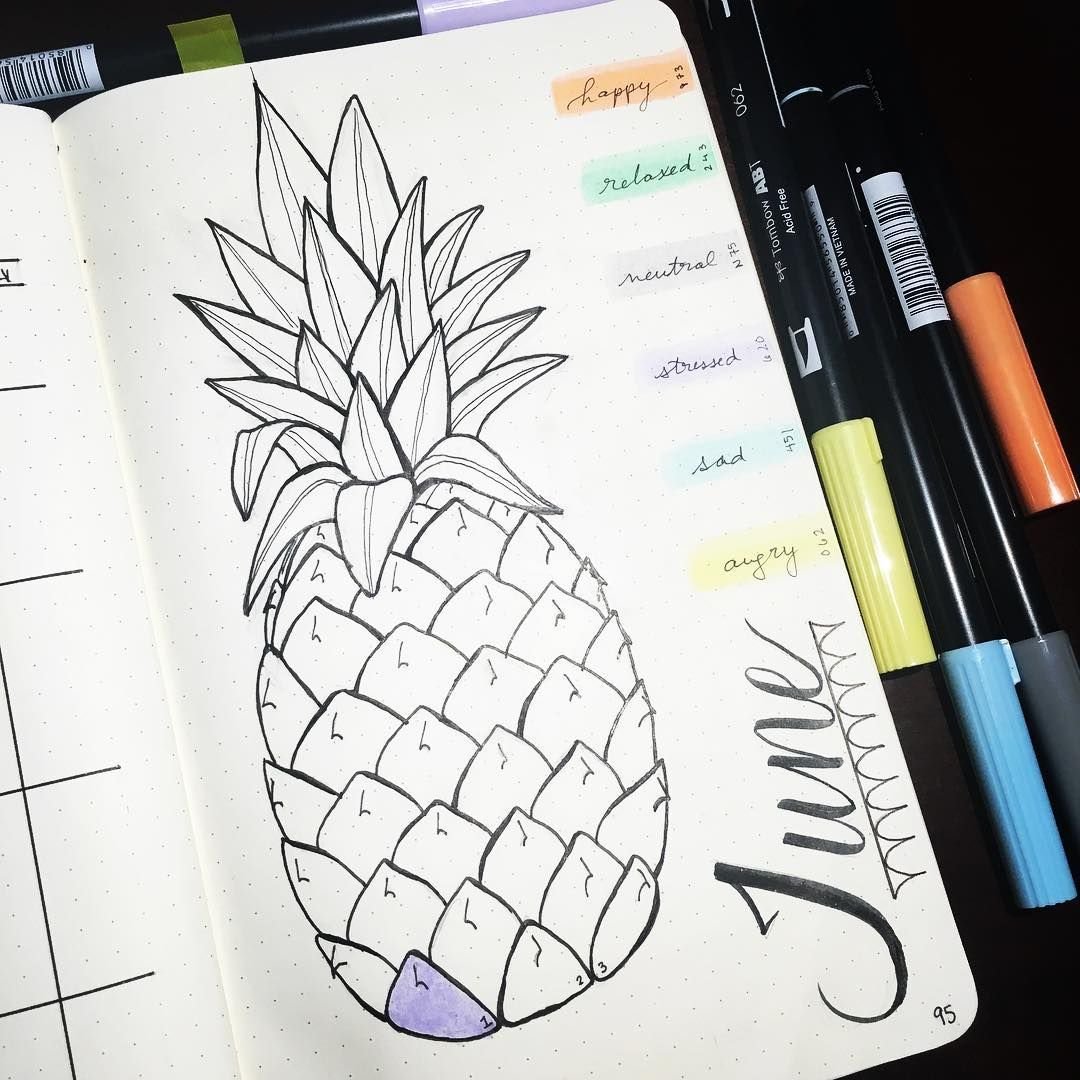 happy 973
relaxed 243
neutral N75
stressed 620
sad 451
angry 062
June
1
2
3
95
062
Tombow ABT
Acid Free
MADE IN VIETNAM